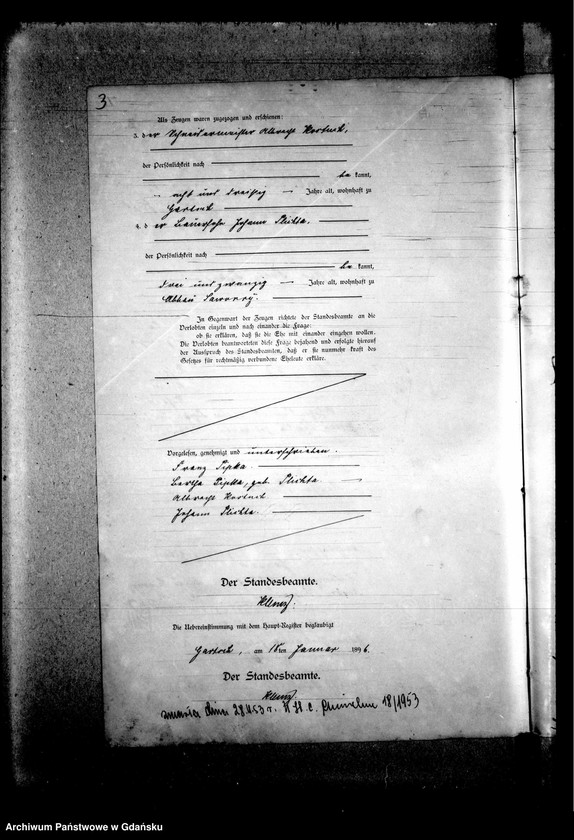 3
Als Zeugen waren zugezogen und erschienen:
3. der Schneidermeister Albrecht
der Persönlichkeit nach
be kannt,
acht und dreißig Jahre alt, wohnhaft zu
4. der Bauersohn Johann Plichta,
der Persönlichkeit nach
be kannt,
drei und zwanzig Jahre alt, wohnhaft zu
Abbau
In Gegenwart der Zeugen richtete der Standesbeamte an die
Verlobten einzeln und nach einander die Frage:
ob sie erklären, daß sie die Ehe mit einander eingehen wollen.
Die Verlobten beantworteten diese Frage bejahend und erfolgte hierauf
der Ausspruch des Standesbeamten, daß er sie nunmehr kraft des
Gesetzes für rechtmäßig verbundene Eheleute erkläre.
Vorgelesen, genehmigt und unterschrieben.
Franz
Bertha geb. Plichta
Albrecht
Johann Plichta.
Der Standesbeamte.
Die Uebereinstimmung mit dem Haupt-Register beglaubigt
am ten Januar 1896.
Der Standesbeamte.
18/1953
Archiwum Państwowe w Gdańsku